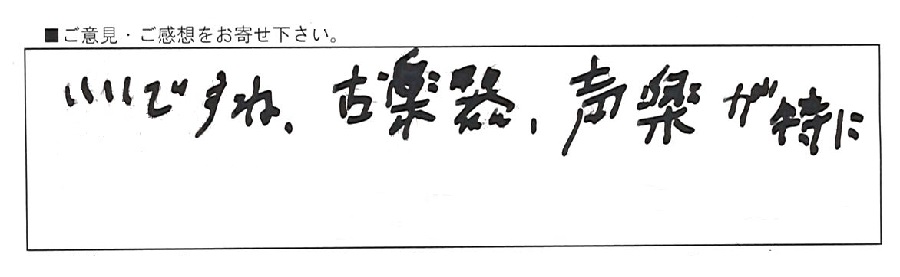 ■ご意見・ご感想をお寄せ下さい。
いいですね、古楽器、声楽が特に